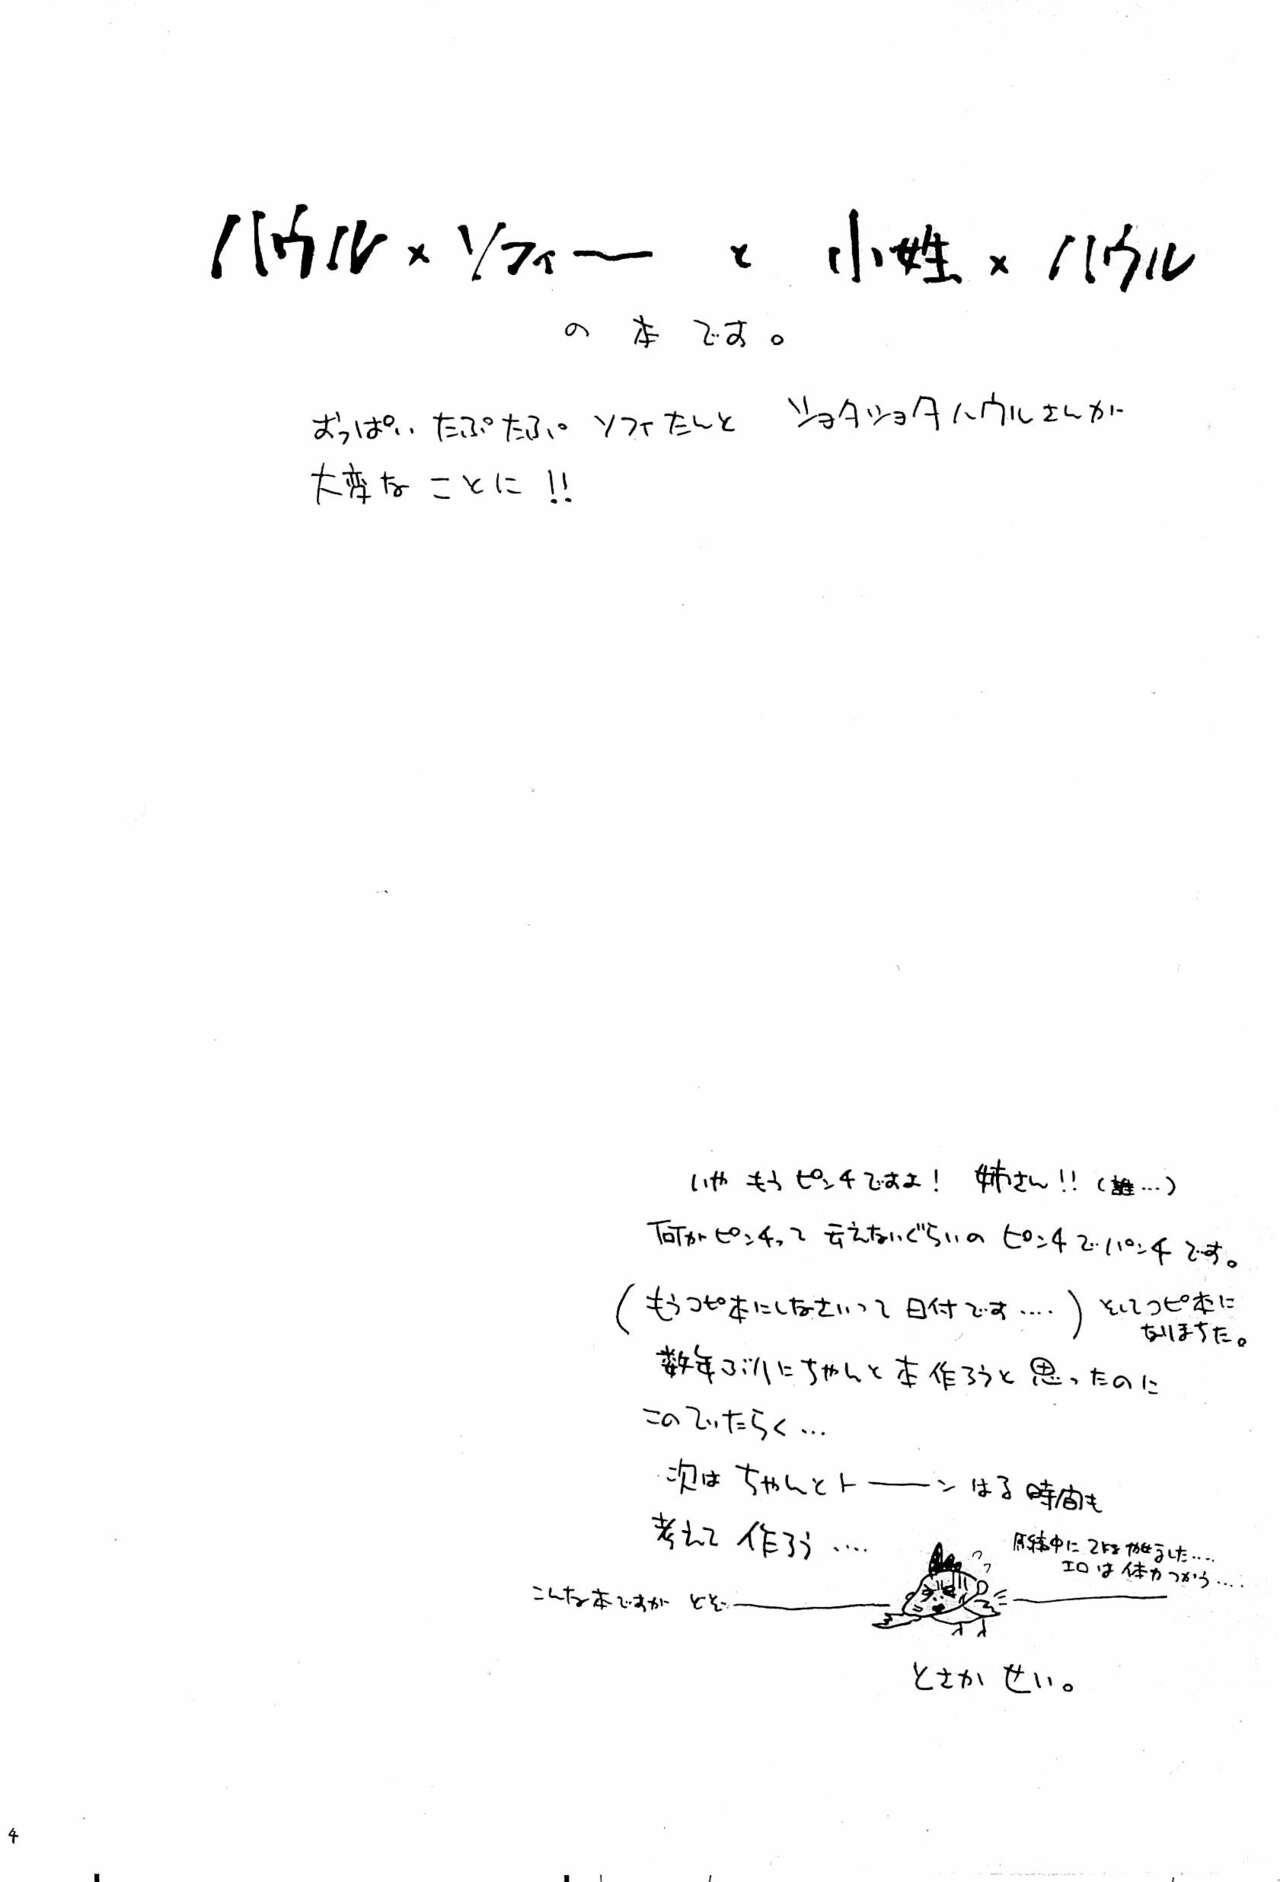 ハウル×ソフィーと 小姓×ハウル
の本です。
おっぱいたぷたぷソフィたんと ショタショタハウルさんが
大変なことに!!
いやもうピンチですよ! 姉さん!!(誰…)
何がピンチって云えないぐらいのピンチでパンチです。
(もうコピ本にしなさいって日付です‥‥)そしてコピ本に
なりまちた。
数年ぶりにちゃんと本作ろうと思ったのに
このていたらく…
次はちゃんとトーーン はる時間も
考えて作ろう‥‥
ました‥‥
エロは体力つかう‥‥
こんな本ですが どぞ
とさか せい。
4